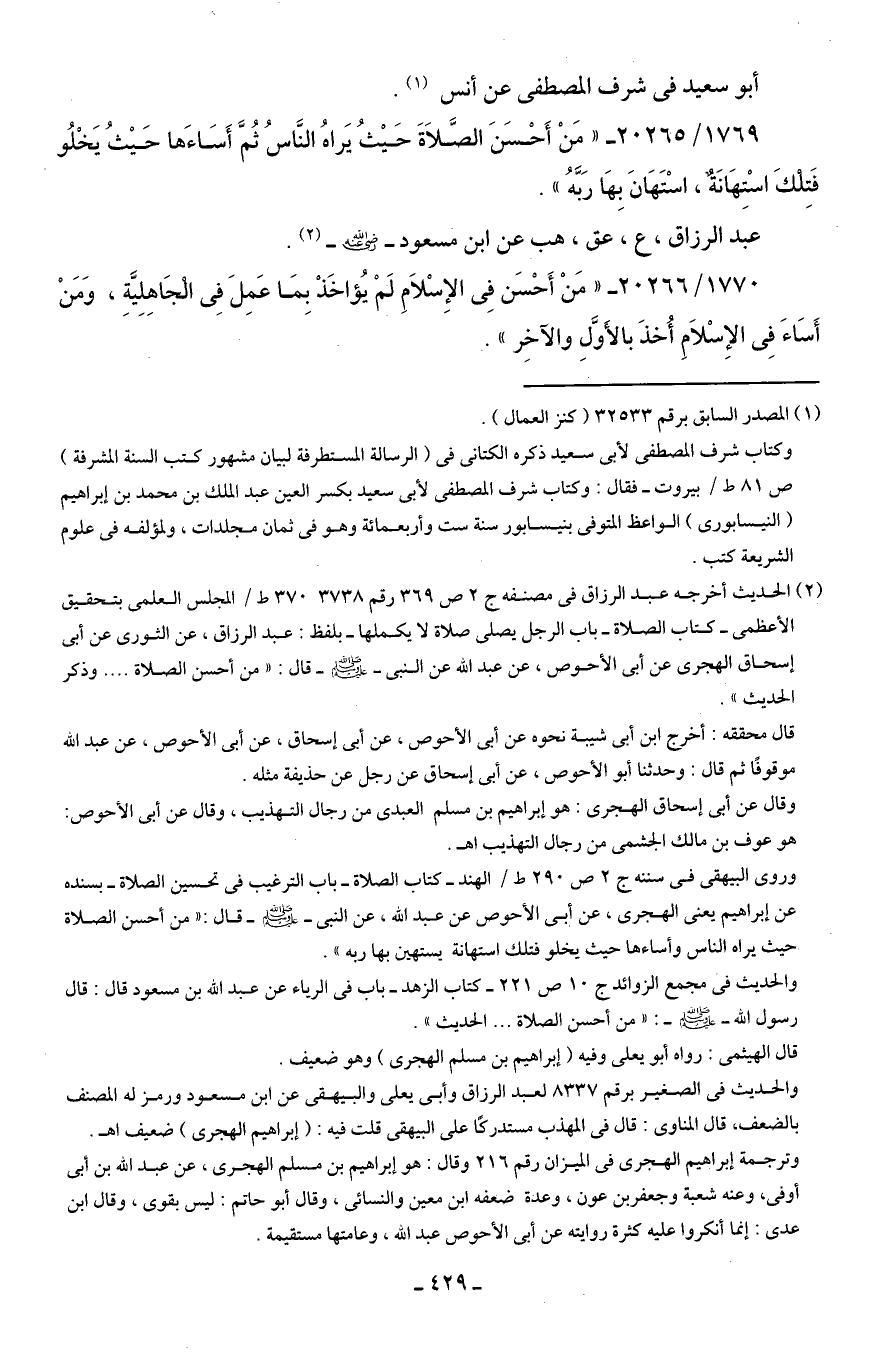 أبو سعيد فى شرف المصطفى عن أنس (١) .
١٧٦٩/ ٢٠٢٦٥ـ « مَنْ أَحْسَنَ الصَّلاَةَ حَيْثُ يَرَاهُ النَّاسُ ثُمَّ أَسَاءَها حَيْثُ يَخْلُو
فَتِلْكَ اسْتِهَانَةٌ ، اسْتَهَانَ بِهَا رَبَّهُ » .
عبد الرزاق ، ع ، عق ، هب عن ابن مسعود ـ رضي الله عنه ـ (٢) .
١٧٧٠/ ٢٠٢٦٦ـ « مَنْ أَحْسَن فِى الإِسْلاَمِ لَمْ يُؤاخَذْ بِمَا عَمِلَ فِى الْجَاهِلِيَّةِ ، وَمَنْ
أَسَاءَ فِى الإِسْلاَمِ أُخذَ بالأَوَّلِ والآخِرِ » .
(١) المصدر السابق برقم ٣٢٥٣٣ ( كنز العمال ) .
وكتاب شرف المصطفى لأبى سعيد ذكره الكتانى فى ( الرسالة المستطرفة لبيان مشهور كتب السنة المشرفة )
ص ٨١ ط / بيروت ـ فقال : وكتاب شرف المصطفى لأبى سعيد بكسر العين عبد الملك بن محمد بن إبراهيم
( النيسابورى ) الواعظ المتوفى بنيسابور سنة ست وأربعمائة وهو فى ثمان مجلدات ، ولمؤلفه فى علوم
الشريعة كتب .
(٢) الحديث أخرجه عبد الرزاق فى مصنفه ج ٢ ص ٣٦٩ رقم ٣٧٣٨ ٣٧٠ ط / المجلس العلمى بتحقيق
الأعظمى ـ كتاب الصلاة ـ باب الرجل يصلى صلاة لا يكملها ـ بلفظ : عبد الرزاق ، عن الثورى عن أبى
إسحاق الهجرى عن أبى الأحوص ، عن عبد الله عن النبى ـ ﷺ ـ قال : « من أحسن الصلاة .... وذكر
الحديث » .
قال محققه : أخرج ابن أبى شيبة نحوه عن أبى الأحوص ، عن أبى إسحاق ، عن أبى الأحوص ، عن عبد الله
موقوفًا ثم قال : وحدثنا أبو الأحوص ، عن أبى إسحاق عن رجل عن حذيفة مثله .
وقال عن أبى إسحاق الهجرى : هو إبراهيم بن مسلم العبدى من رجال التهذيب ، وقال عن أبى الأحوص:
هو عوف بن مالك الجشمى من رجال التهذيب اهـ .
وروى البيهقى فى سننه ج ٢ ص ٢٩٠ ط / الهند ـ كتاب الصلاة ـ باب الترغيب فى تحسين الصلاة ـ بسنده
عن إبراهيم يعنى الهجرى ، عن أبى الأحوص عن عبد الله ، عن النبى ـ ﷺ ـ قال :« من أحسن الصلاة
حيث يراه الناس وأساءها حيث يخلو فتلك استهانة يستهين بها ربه » .
والحديث فى مجمع الزوائد ج ١٠ ص ٢٢١ ـ كتاب الزهد ـ باب فى الرياء عن عبد الله بن مسعود قال : قال
رسول الله ـ ﷺ ـ : « من أحسن الصلاة ... الحديث » .
قال الهيثمى : رواه أبو يعلى وفيه ( إبراهيم بن مسلم الهجرى ) وهو ضعيف .
والحديث فى الصغير برقم ٨٣٣٧ لعبد الرزاق وأبى يعلى والبيهقى عن ابن مسعود ورمز له المصنف
بالضعف، قال المناوى : قال فى المهذب مستدركًا على البيهقى قلت فيه : ( إبراهيم الهجرى ) ضعيف اهـ .
وترجمة إبراهيم الهجرى فى الميزان رقم ٢١٦ وقال : هو إبراهيم بن مسلم الهجرى ، عن عبد الله بن أبى
أوفى، وعنه شعبة وجعفربن عون ، وعدة ضعفه ابن معين والنسائى ، وقال أبو حاتم : ليس بقوى ، وقال ابن
عدى : إنما أنكروا عليه كثرة روايته عن أبى الأحوص عبد الله ، وعامتها مستقيمة .
ـ ٤٢٩ ـ